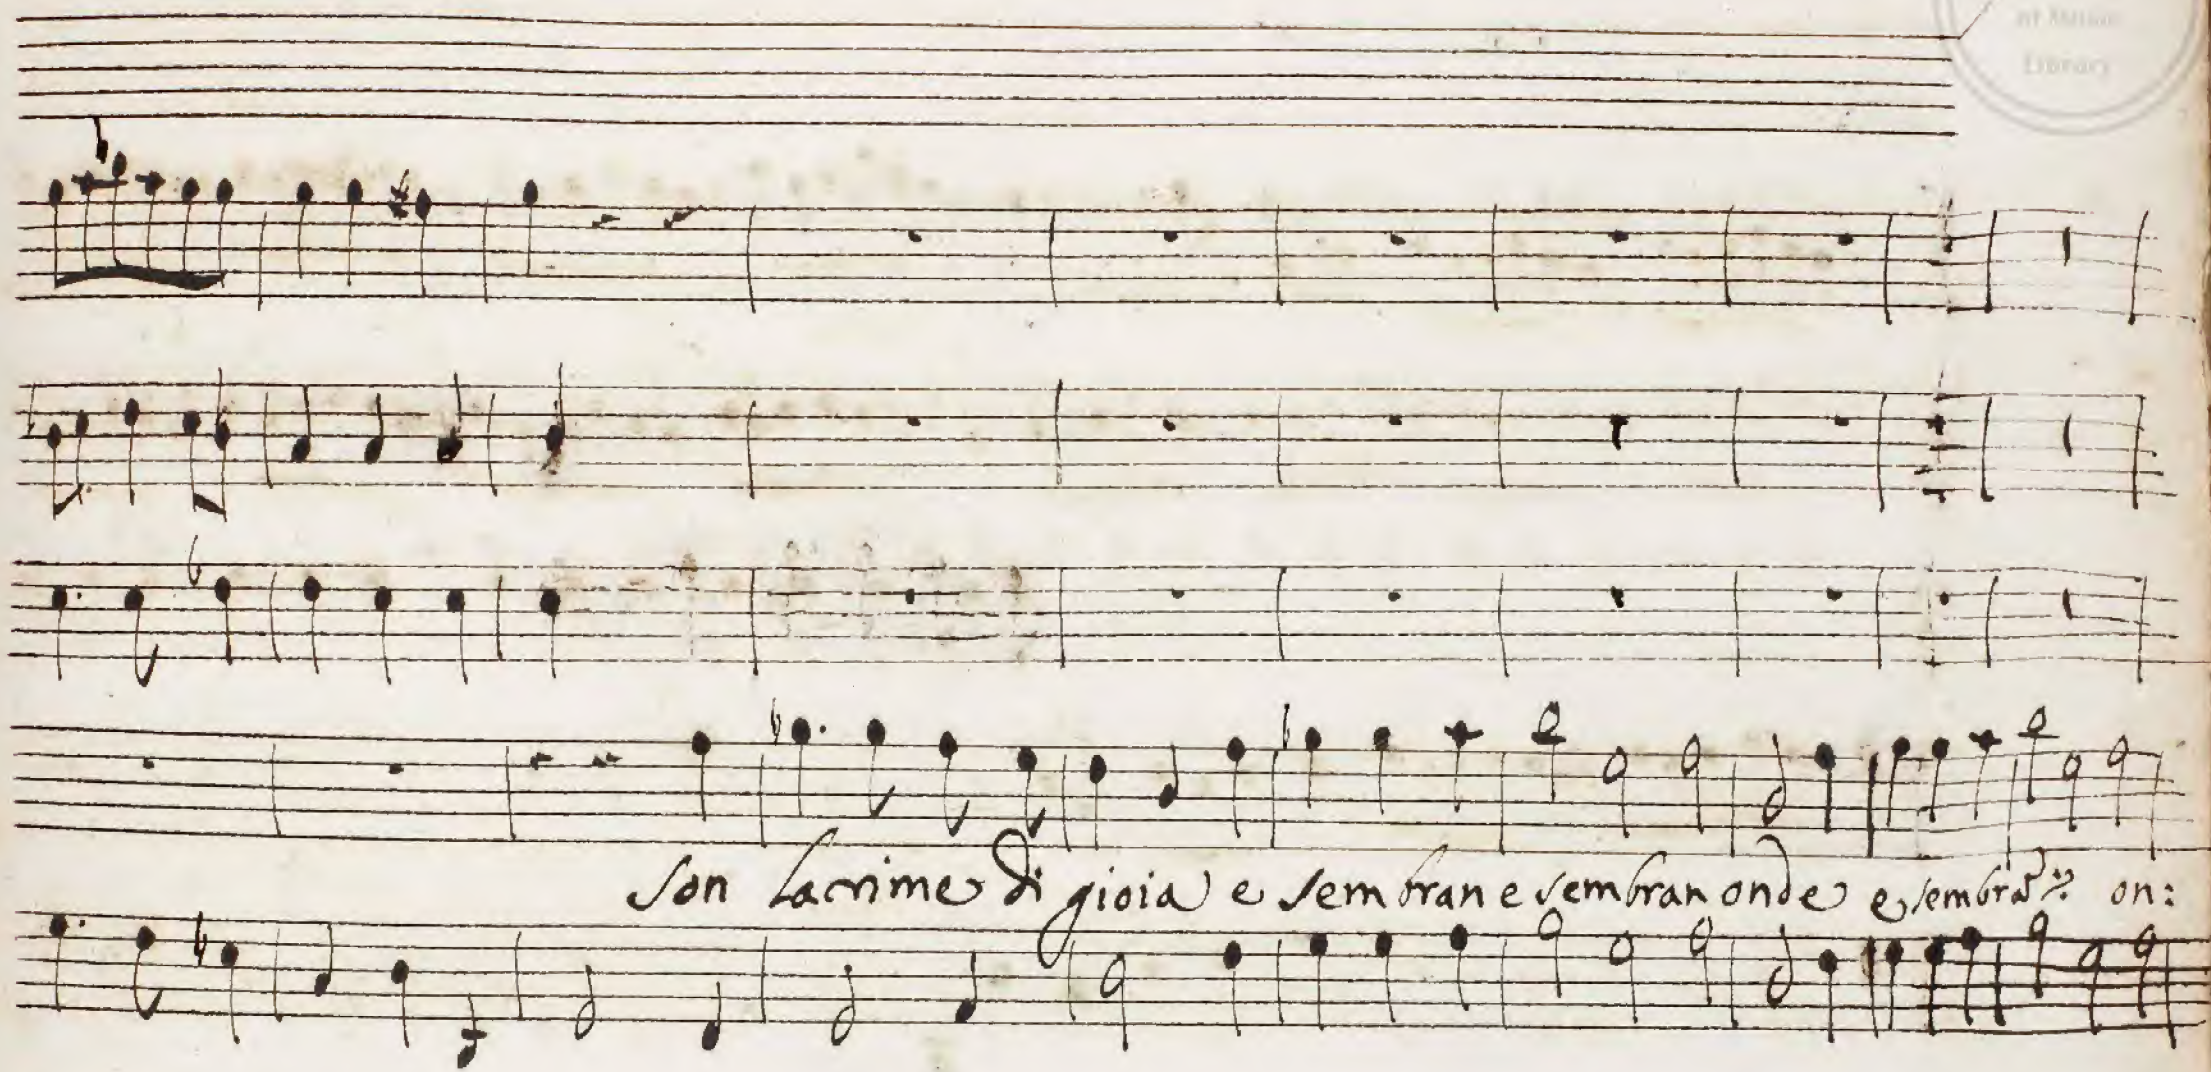 of Music
Library
son lacrime di gioia e sembran e sembran onde e sembrã ʺ on: